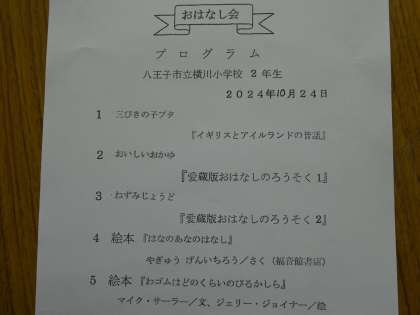 おはなし会
プログラム
八王子市立横川小学校 2年生
2024年10月24日
1 三びきの子ブタ
『イギリスとアイルランドの昔話』
2 おいしいおかゆ
『愛蔵版おはなしのろうそく1』
3 ねずみじょうど
『愛蔵版おはなしのろうそく2』
4 絵本『はなのあなのはなし』
やぎゅう げんいちろう/さく(福音館書店)
5 絵本『わゴムはどのくらいのびるかしら』
マイク・サーラー/文、ジェリー・ジョイナー/絵